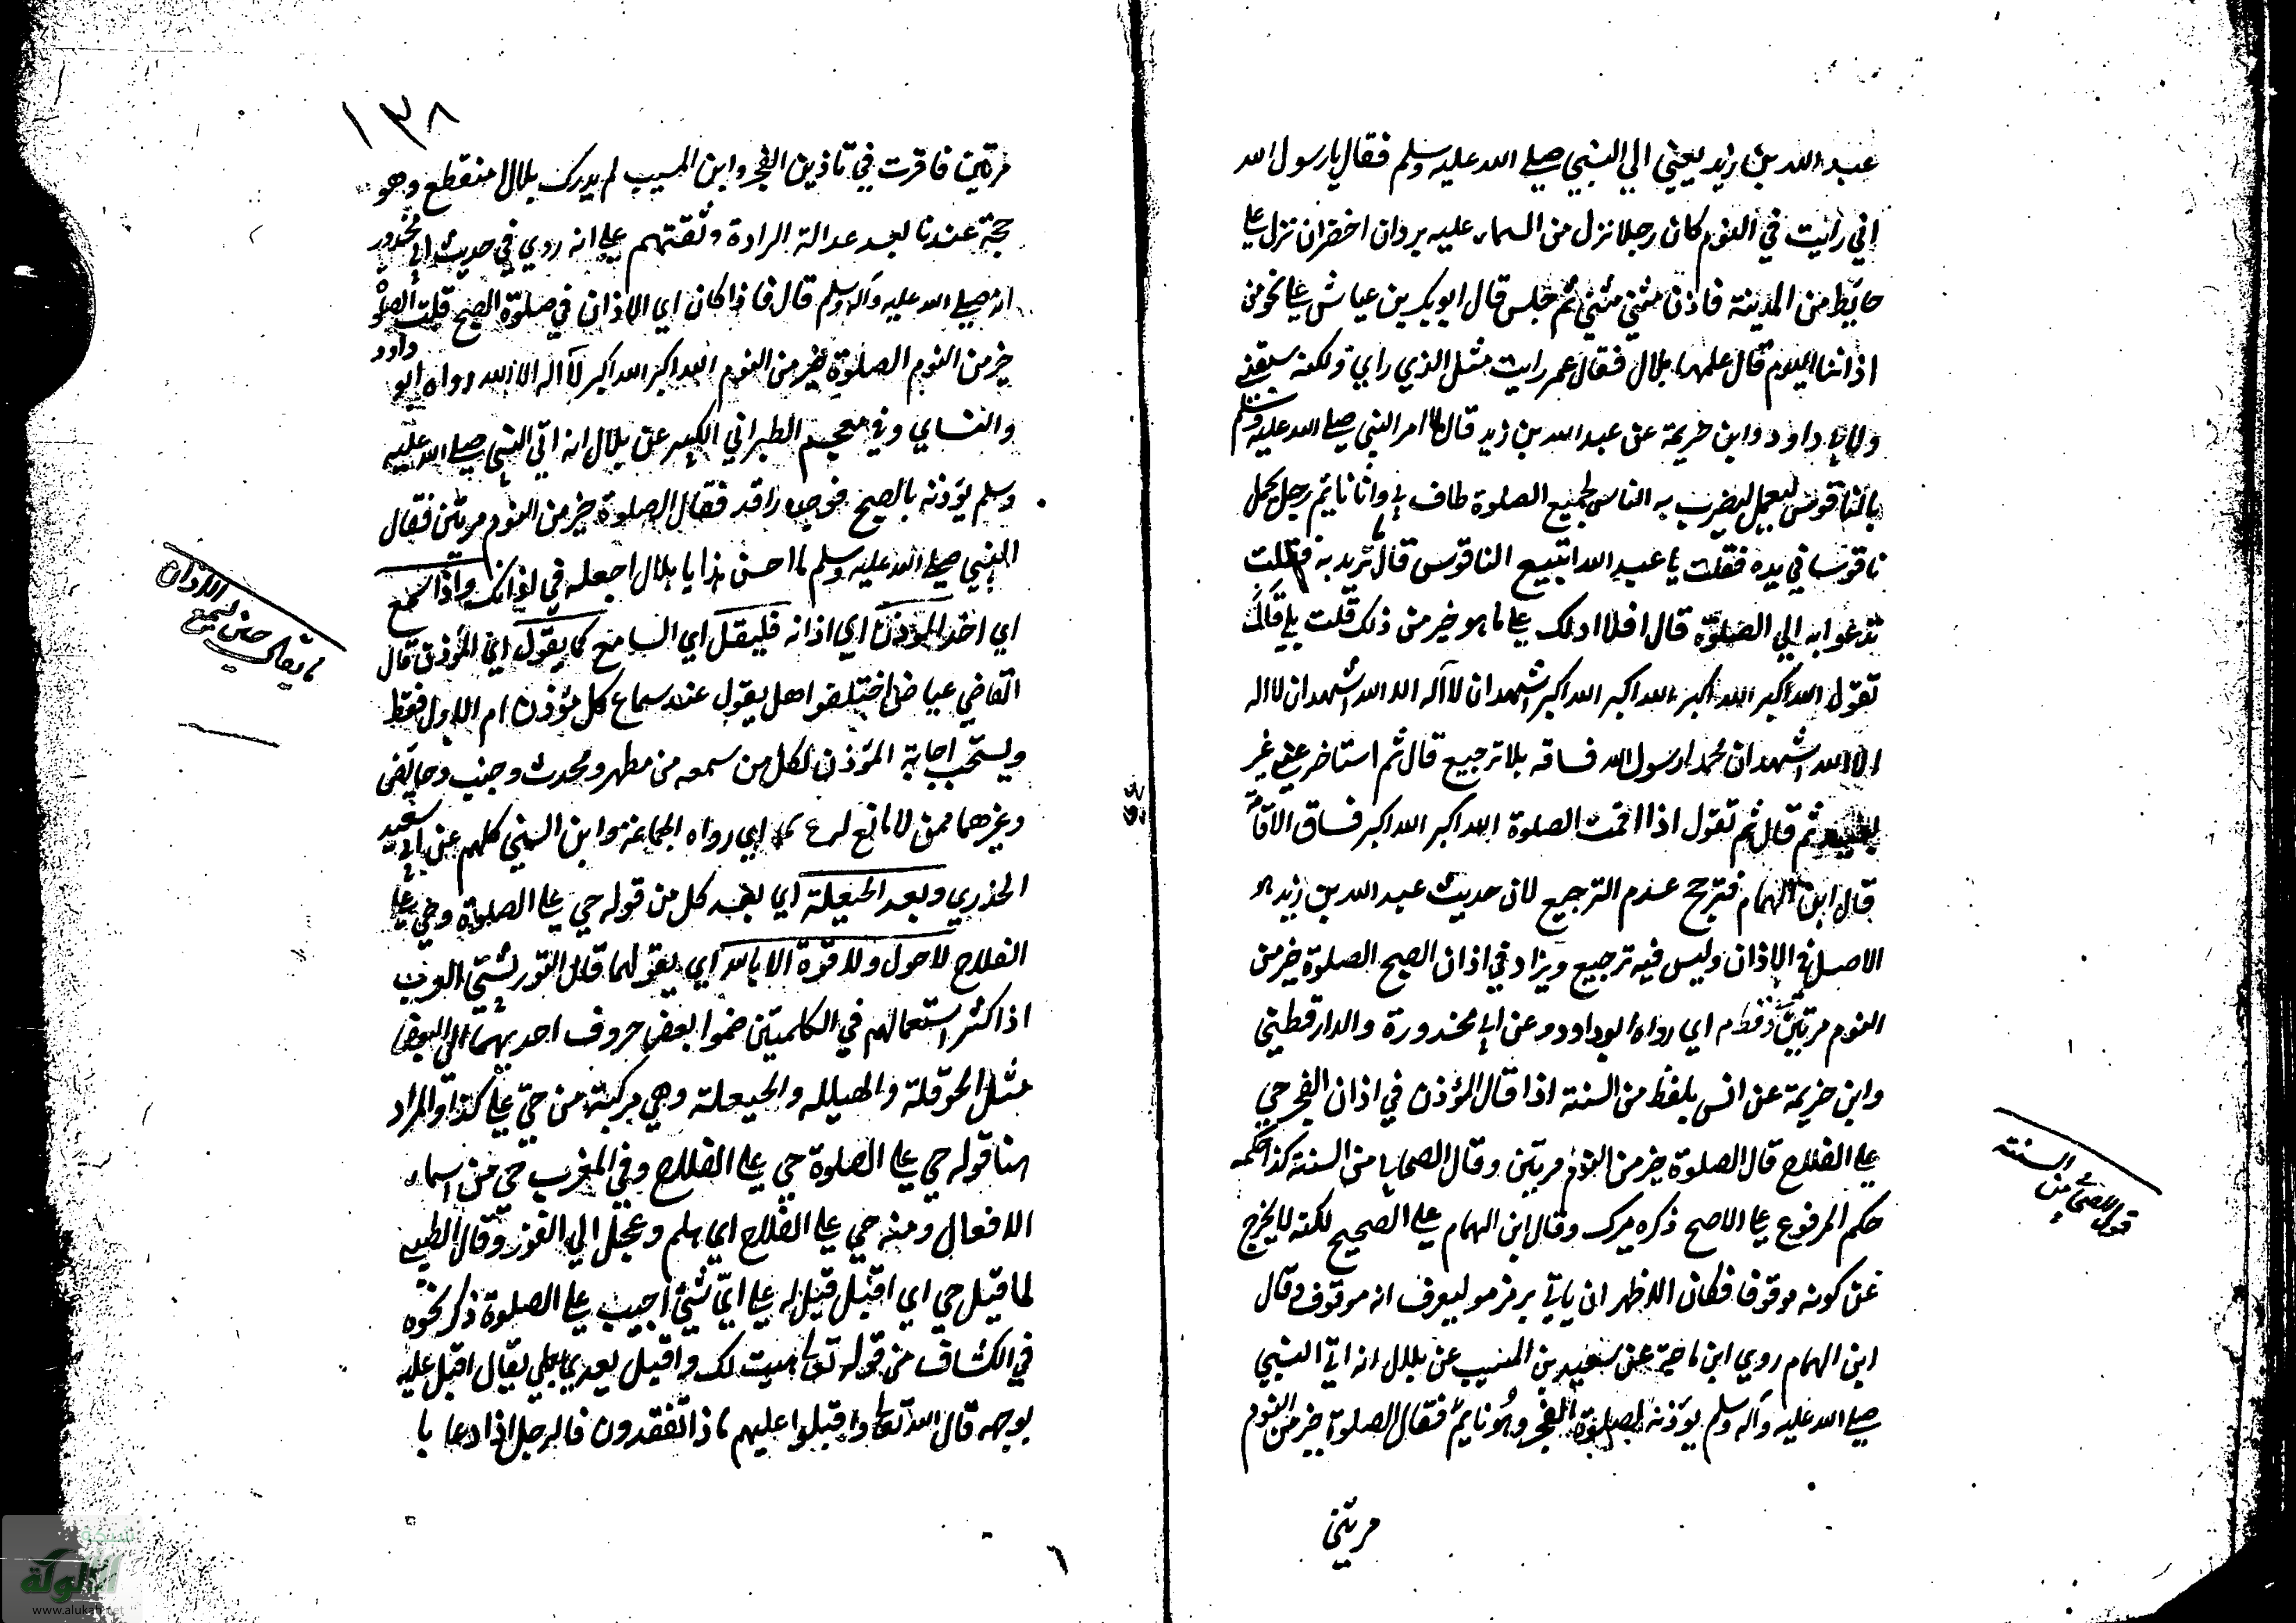 عبد الله بن زيد يعني الي النبي صلي الله عليه وسلم فقال يارسول الله
اني رأيت في النوم كان رجلا نزل من السماء عليه بردان اخضران نزل علي
حايط من المدينة فاذن مثني مثني ثم جلس قال ابو بكر بن عياش علي نحو من
اذاننا اليوم قال علمها بلال فقال عمر رايت مثل الذي راي ولكنه سبقني
ولابي داود وابن خزيمة عن عبد الله بن زيد قال لما امر النبي صلي الله عليه وسلم
بالناقوس ليعمل ليضرب به الناس لجميع الصلوة طاف بي وانا نايم رجل يحمل
ناقوسا في يده فقلت يا عبد الله اتبيع الناقوس قال ما تريد به فقلت
تدعوا به الي الصلوة قال افلا ادلك علي ما هو خير من ذلك قلت بلي قال
تقول الله اكبر الله اكبر الله اكبر الله اكبر اشهد ان لا اله الا الله اشهد ان لا اله
الا الله اشهد ان محمدا رسول الله فساقه بلا ترجيع قال ثم استاخر عني غير
بعيد ثم قال ثم تقول اذا اقمت الصلوة الله اكبر الله اكبر فساق الاقامة
قال ابن الهمام فترجح عدم الترجيع لان حديث عبد الله بن زيد هو
الاصل في الاذان وليس فيه ترجيع ويزاد في اذان الصبح الصلوة خير من
النوم مرتين د قط م اي رواه ابو داود عن ابي محذورة والدارقطني
وابن خزيمة عن انس بلفظ من السنة اذا قال المؤذن في اذان الفجر حي
علي الفلاح قال الصلوة خير من النوم مرتين وقال الصحابي من السنة كذا حكمه
حكم المرفوع علي الاصح ذكره ميرك وقال ابن الهمام علي الصحيح لكنه لا يخرج
عن كونه موقوفا فكان الاظهر ان ياتي برمز مو ليعرف انه موقوف وقال
ابن الهمام روي ابن ماجة عن سعيد بن المسيب عن بلال انه اتي النبي
صلي الله عليه وآله وسلم يؤذنه لصلوة الفجر وهو نايم فقال الصلوة خير من النوم
مرتين
قول الصحابي من السنة
١٣٨
مرتين فاقرت في تاذين الفجر وابن المسيب لم يدرك بلال منقطع وهو
حجة عندنا بعد عدالة الرواة وثقتهم علي انه روي في حديث ابي محذورة
انه صلي الله عليه وآله وسلم قال فاذا كان اي الاذان في صلوة الصبح قلت الصلوة
خير من النوم الصلوة خير من النوم الله اكبر الله اكبر لا اله الا الله رواه ابو داود
والنساي وفي معجم الطبراني الكبير عن بلال انه اتي النبي صلي الله عليه
وسلم يؤذنه بالصبح فوجده راقد فقال الصلوة خير من النوم مرتين فقال
النبي صلي الله عليه وسلم ما احسن هذا يا بلال اجعله في اذانك واذا سمع
اي احد المؤذن اي اذانه فليقل اي السامع كما يقول اي المؤذن قال
القاضي عياض اختلفوا هل يقول عند سماع كل مؤذن ام الاول فقط
ويستحب اجابة المؤذن لكل من سمعه من مطهر ومحدث وجنب وحايض
وغيرهما ممن لا مانع له ع ي اي رواه الجماعة وابن السني كلهم عن ابي سعيد
الخدري وبعد الحيعلة اي بعد كل من قوله حي علي الصلوة وحي علي
الفلاح لا حول ولا قوة الا بالله اي يقولها قال التوربشتي العرب
اذا كثر استعمالهم في الكلمتين ضموا بعض حروف احديهما الي البعض
مثل الحوقلة والهيلله والحيعلة وهي مركبة من حي علي كذا والمراد
هنا قوله حي علي الصلوة حي علي الفلاح وفي المغرب حي من اسماء
الافعال ومنه حي علي الفلاح اي هلم وعجل الي الفوز وقال الطيبي
لما قيل حي اي اقبل قيل له علي اي شئ اجيب علي الصلوة ذكر نحوه
في الكشاف من قوله تعالي هيت لك واقبل يعدي بعلي يقال اقبل عليه
بوجهه قال الله تعالي واقبلوا عليهم ماذا تفقدون فالرجل اذا دعا با
ما يقال حين يسمع الاذان
الألوكة
www.alukah.net